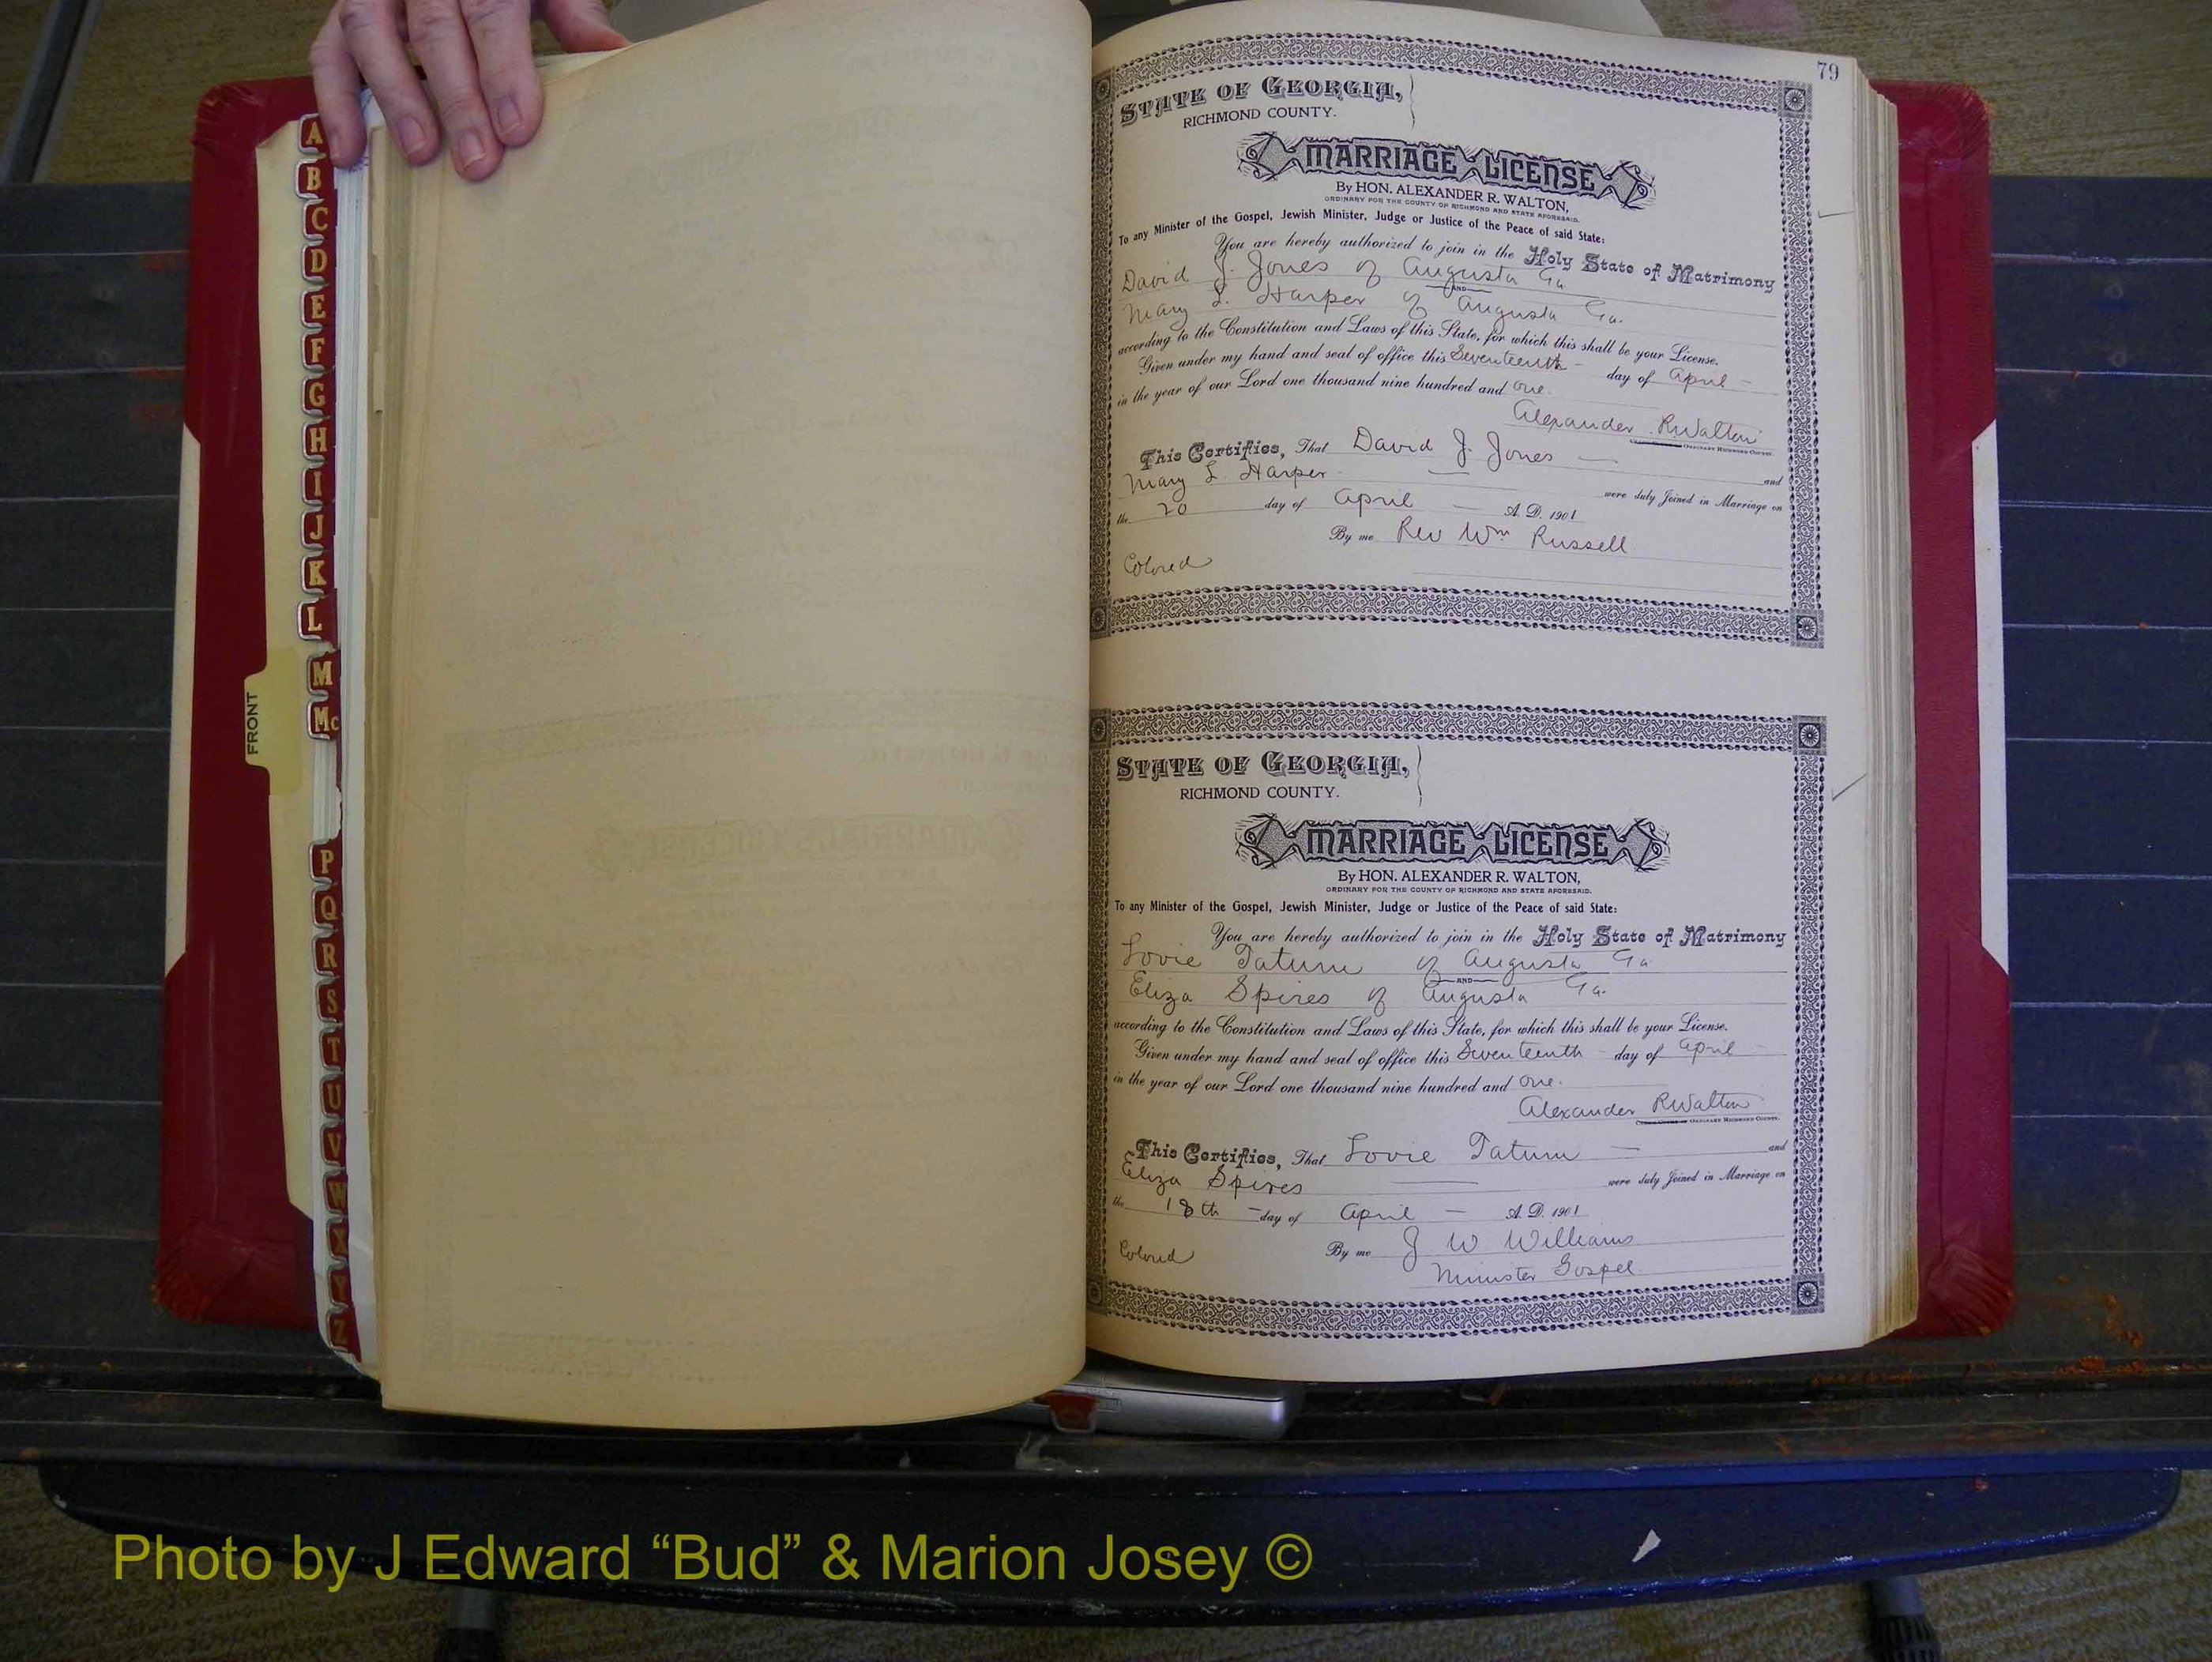 A
B
C
D
E
F
G
H
I
J
K
L
M
Mc
P
Q
R
S
T
U
V
W
X
Y
Z
FRONT
79
STATE OF GEORGIA,
RICHMOND COUNTY.
MARRIAGE LICENSE
By HON. ALEXANDER R. WALTON,
ORDINARY FOR THE COUNTY OF RICHMOND AND STATE AFORESAID.
To any Minister of the Gospel, Jewish Minister, Judge or Justice of the Peace of said State:
You are hereby authorized to join in the Holy State of Matrimony
David J. Jones of Augusta Ga
AND
Mary L. Harper of Augusta Ga.
according to the Constitution and Laws of this State, for which this shall be your License.
Given under my hand and seal of office this Seventeenth - day of April -
in the year of our Lord one thousand nine hundred and one.
Alexander R Walton
ORDINARY RICHMOND COUNTY.
This Certifies, That David J. Jones — and
Mary L. Harper — were duly Joined in Marriage on
the 20 day of April — A. D. 1901
By me Rev Wm Russell
Colored
STATE OF GEORGIA,
RICHMOND COUNTY.
MARRIAGE LICENSE
By HON. ALEXANDER R. WALTON,
ORDINARY FOR THE COUNTY OF RICHMOND AND STATE AFORESAID.
To any Minister of the Gospel, Jewish Minister, Judge or Justice of the Peace of said State:
You are hereby authorized to join in the Holy State of Matrimony
Lovie Tatum of Augusta Ga
AND
Eliza Spires of Augusta Ga.
according to the Constitution and Laws of this State, for which this shall be your License.
Given under my hand and seal of office this Seventeenth - day of April -
in the year of our Lord one thousand nine hundred and one.
Alexander R Walton
ORDINARY RICHMOND COUNTY.
This Certifies, That Lovie Tatum — and
Eliza Spires — were duly Joined in Marriage on
the 18th - day of April — A. D. 1901
By me J W Williams
Colored
Minister Gospel
Photo by J Edward “Bud” & Marion Josey ©